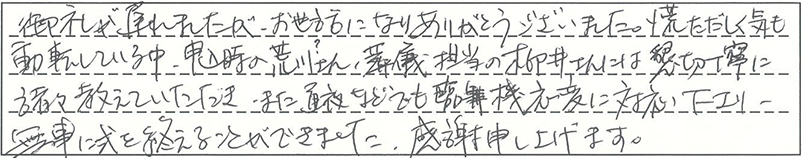 御礼が遅れましたが、お世話になりありがとうございました。慌ただしく気も
動転している中、臨時の荒川さん?、葬儀担当の柳井さんには懇切丁寧に
諸々教えていただき、また通夜などでも臨機応変に対応下さり、
無事に式を終えることができました。感謝申し上げます。